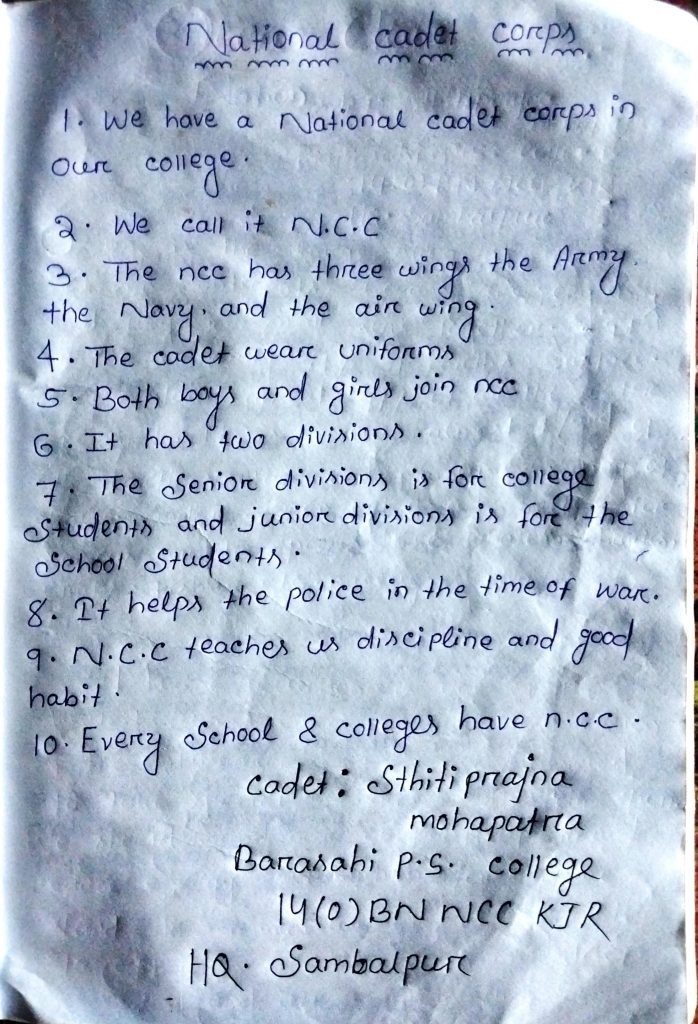 National cadet corps
1. We have a National cadet corps in
our college.
2. We call it N.C.C
3. The ncc has three wings the Army.
the Navy, and the air wing.
4. The cadet wear uniforms
5. Both boys and girls join ncc
6. It has two divisions.
7. The Senior divisions is for college
Students and junior divisions is for the
School Students.
8. It helps the police in the time of war.
9. N.C.C teaches us discipline and good
habit.
10. Every School & colleges have n.c.c.
Cadet: Sthitiprajna
mohapatra
Barasahi P.S. college
14(O) BN NCC KJR
HQ. Sambalpur